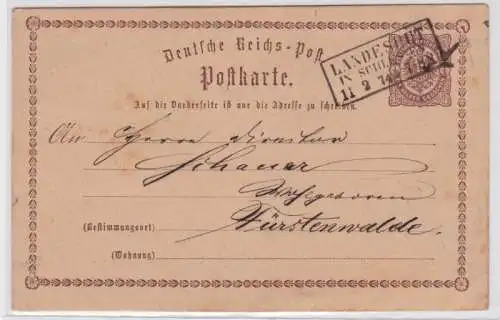 Deutsche Reichs-Post
Postkarte.
LANDESHUT
IN SCHL.
11 2 74
Auf die Vorderseite ist nur die Adresse zu schreiben.
An Herrn Direktor
Schauer
(Bestimmungsort) Fürstenwalde.
(Wohnung)